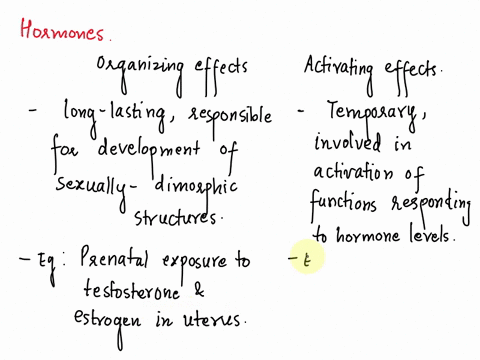 Hormones.
Organizing effects
- long-lasting, responsible
for development of
sexually-dimorphic
structures.
- Eg: Prenatal exposure to
testosterone &
estrogen in uterus.
Activating effects.
- Temporary,
involved in
activation of
functions responding
to hormone levels.
- E